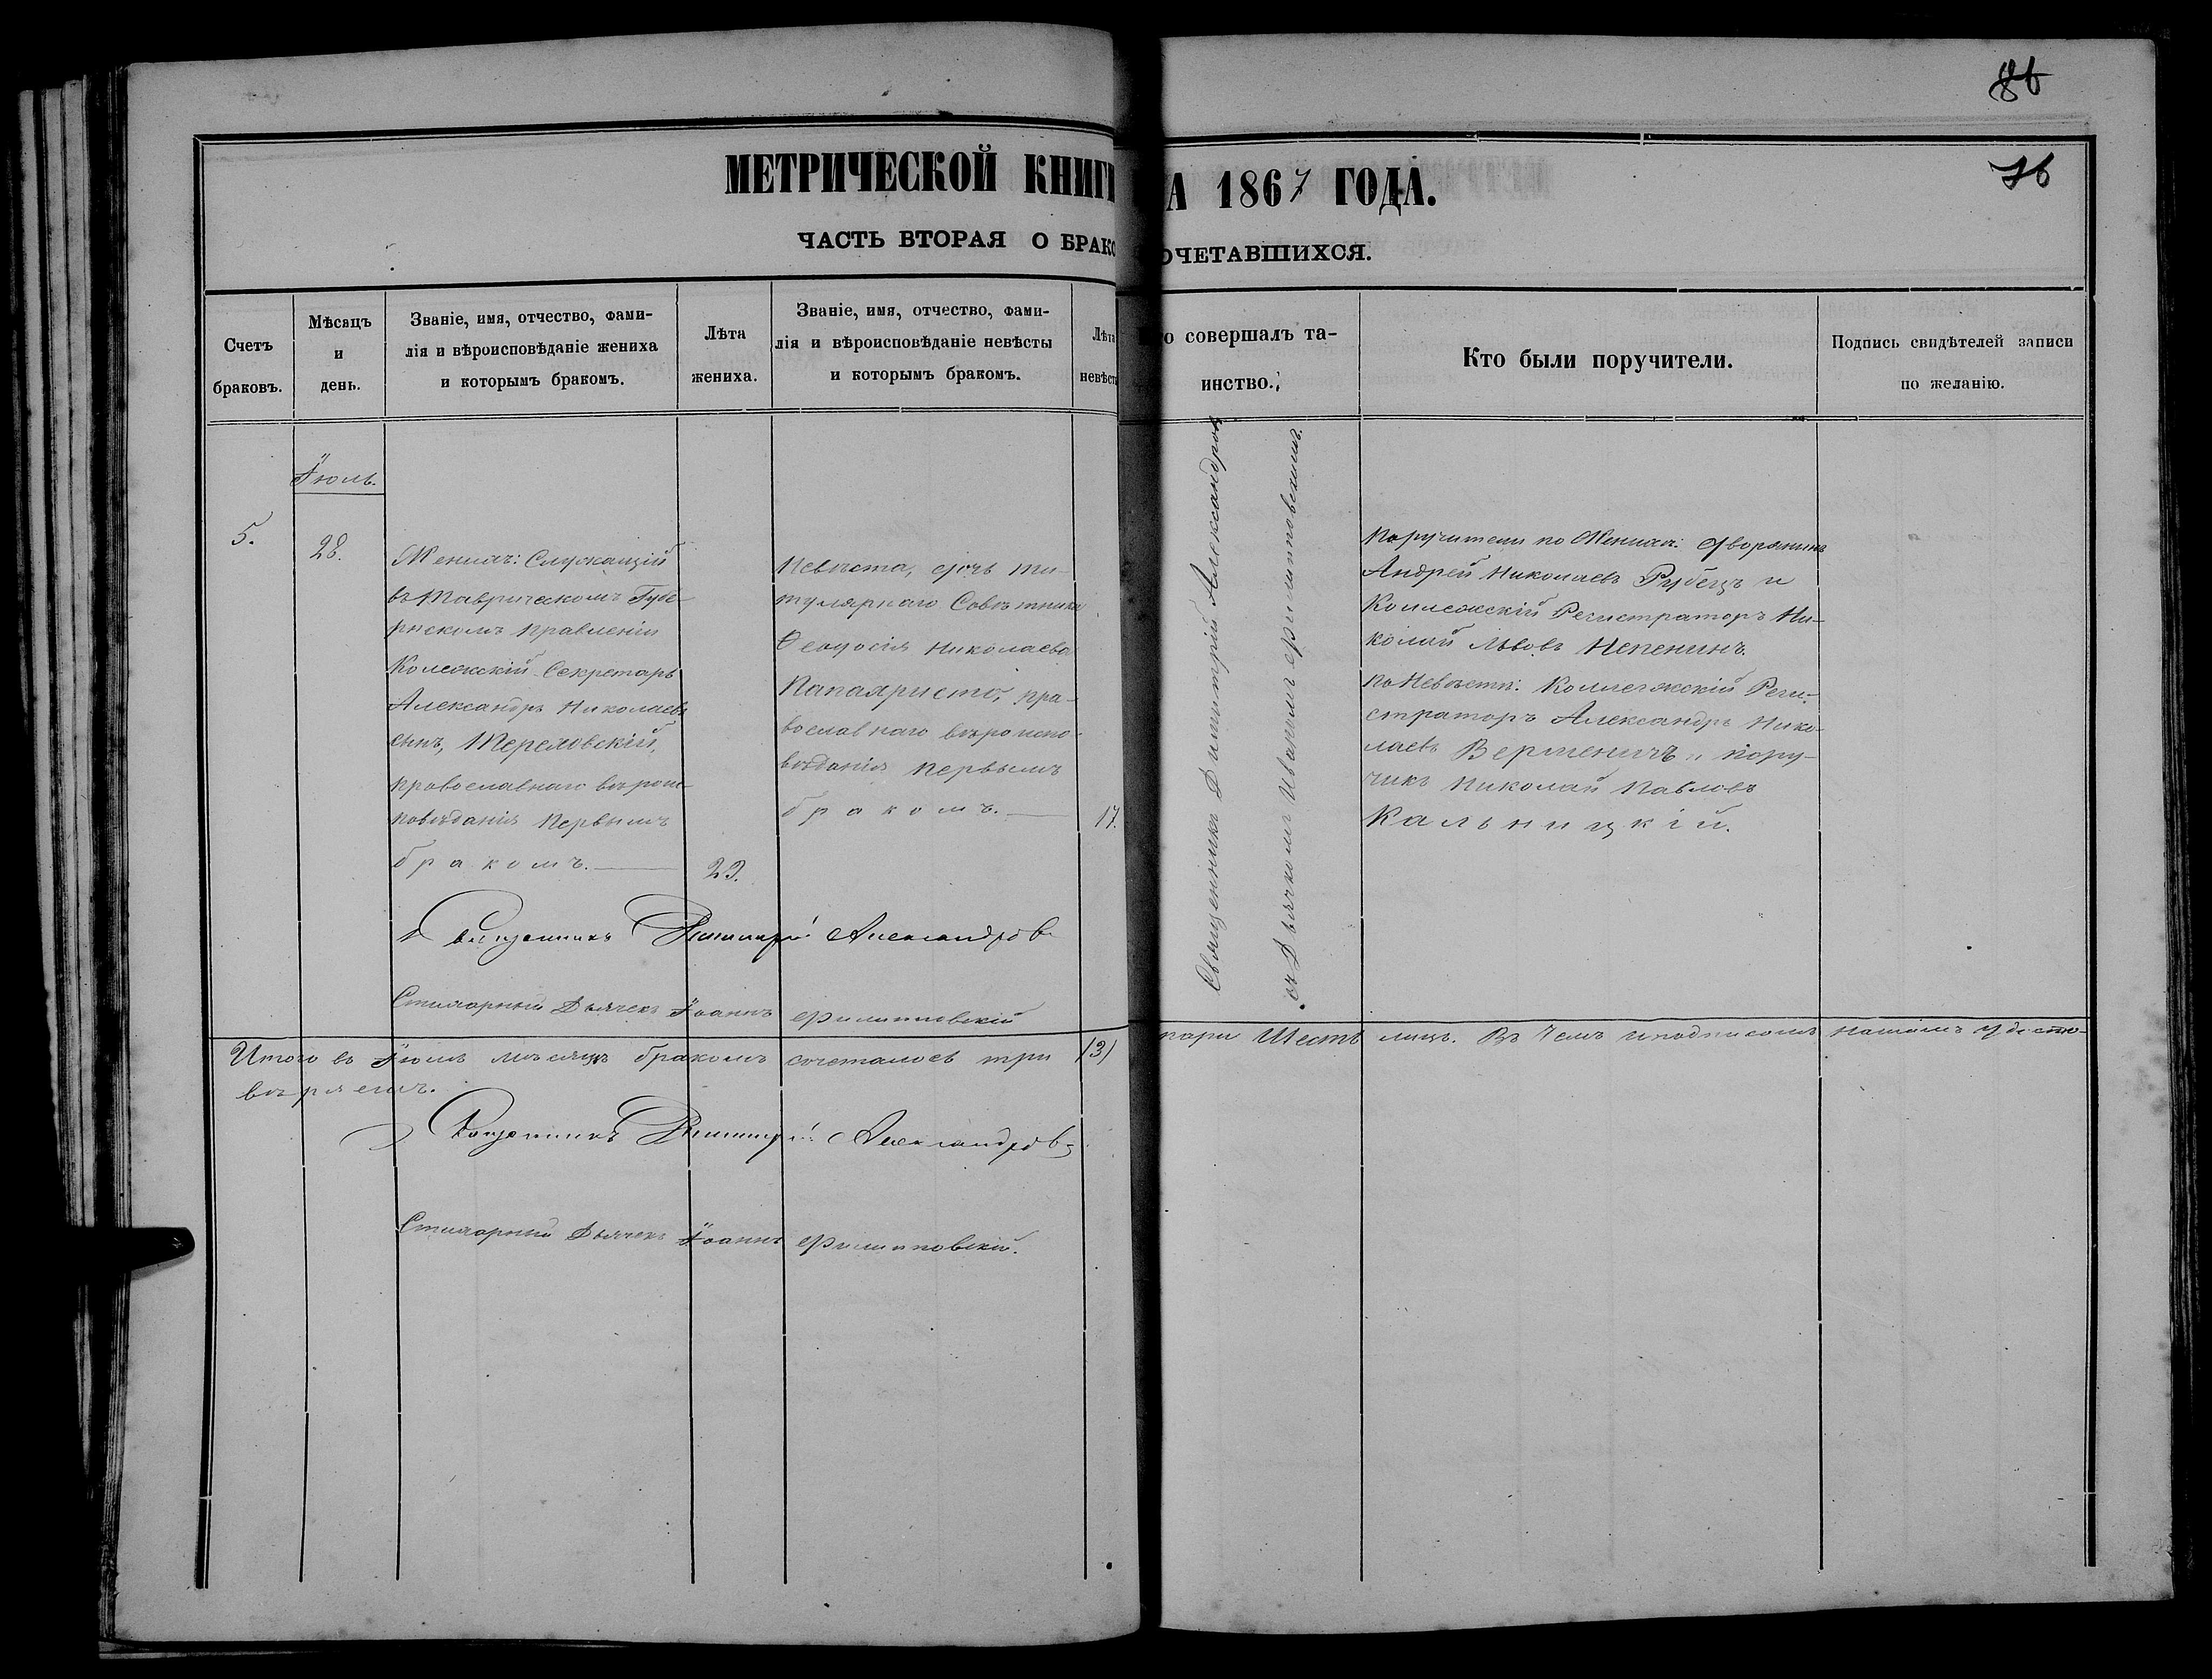 86
76
МЕТРИЧЕСКОЙ КНИГИ
А 1867 ГОДА.
ЧАСТЬ ВТОРАЯ О БРАКО
ОЧЕТАВШИХСЯ.
Счетъ
браковъ.
Мѣсяцъ
и
день.
Званіе, имя, отчество, фами-
лія и вѣроисповѣданіе жениха
и которымъ бракомъ.
Лѣта
жениха.
Званіе, имя, отчество, фами-
лія и вѣроисповѣданіе невѣсты
и которымъ бракомъ.
Лѣта
невѣсты
о совершалъ та-
инство.
Кто были поручители.
Подпись свидѣтелей записи
по желанію.
Іюль.
5.
28.
Женихъ: Служащій
въ Таврическомъ Губе-
рнскомъ правленіи
Колежскій Секретарь
Александръ Николаевъ
сынъ,
православнаго вѣроис-
повѣданія первымъ
бракомъ.
23.
Невѣста, дочь ти-
тулярнаго Совѣтника
Ѳеодосія Николаева
Папахристо, пра-
вославнаго вѣроиспо-
вѣданія первымъ
бракомъ.
17.
Священникъ Димитрій Александровъ
съ Дьячкомъ Иваномъ Филиповскимъ.
Поручители по Женихѣ: Дворянинъ
Андрей Николаевъ Рубецъ и
Коллежскій Регистраторъ Ни-
колай Львовъ Непенинъ.
по Невѣстѣ: Коллежскій Реги-
страторъ Александръ Нико-
лаевъ Верменичъ и пору-
чикъ Николай Павловъ
Кальницкій.
Священникъ Димитрій Александровъ
Стихарный Дьячекъ Іоаннъ Филиповскій
Итого въ Іюлѣ мѣсяцѣ бракомъ сочеталось три (3)
пары Шесть лицъ. Въ чемъ и подписомъ нашимъ удосто-
вѣряемъ.
Священникъ Димитрій Александровъ
Стихарный Дьячекъ Іоаннъ Филиповскій.